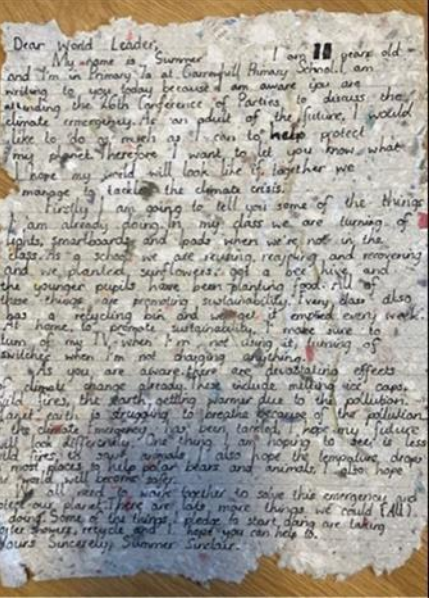 Dear World Leader,
My name is Summer I am 11 years old
and I'm in Primary 7a at Primary School. I am
writing to you today because I am aware you are
attending the 26th Conference of Parties to discuss the
climate emergency. As an adult of the future, I would
like to do as much as I can to help protect
my planet. Therefore I want to let you know what
I hope my world will look like if together we
manage to tackle the climate crisis.
Firstly I am going to tell you some of the things
I am already doing. In my class we are turning of
lights, smartboards and ipads when we're not in the
class. As a school we are reusing, recycling and recovering
and we planted sunflowers, got a bee hive and
the younger pupils have been planting food. All of
these things are promoting sustainability. Every class also
has a recycling bin and we get it emptied every week.
At home, to promote sustainability, I make sure to
turn of my TV when I'm not using it, turning of
switches when I'm not charging anything.
As you are aware there are devastating effects
of climate change already. These include melting ice caps,
wild fires, the earth getting warmer due to the pollution.
Planet earth is struggling to breathe because of the pollution.
If the climate Emergency has been tackled, I hope my future
will look differently. One thing I am hoping to see is less
wild fires, animals, I also hope the temperature drops
in most places to help polar bears and animals, I also hope
the world will become safer.
We all need to work together to solve this emergency and
protect our planet. There are lots more things we could (All)
doing. Some of the things I pledge to start doing are taking
showers, recycle and I hope you can help to.
Yours Sincerely, Summer Sinclair.